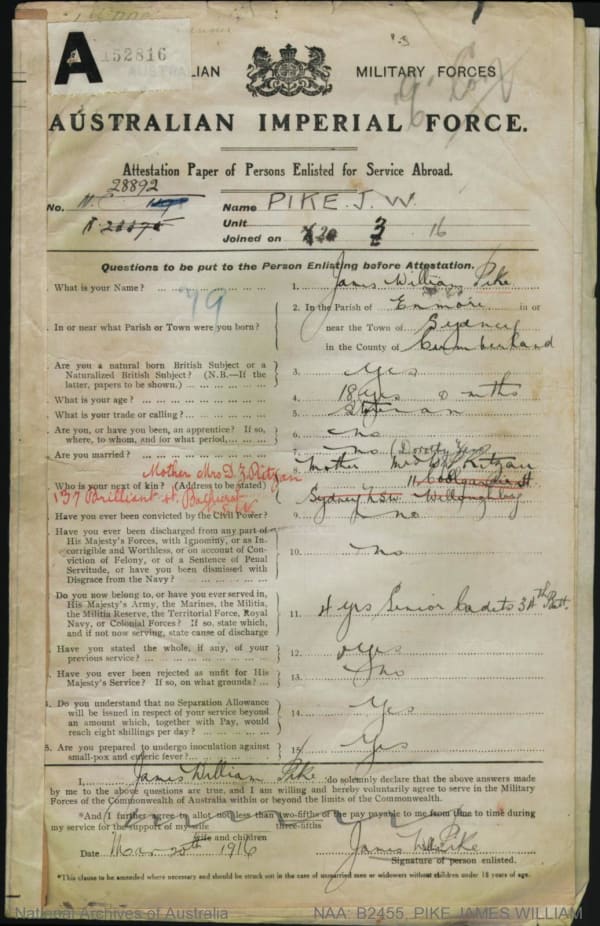 A 152816
AUSTRALIAN MILITARY FORCES
AUSTRALIAN IMPERIAL FORCE.
Attestation Paper of Persons Enlisted for Service Abroad.
28892
No.
Name PIKE. J. W.
Unit
Joined on 20 3 16
Questions to be put to the Person Enlisting before Attestation.
79
What is your Name? 1. James William Pike
In or near what Parish or Town were you born? 2. In the Parish of Enmore in or
near the Town of Sydney
in the County of Cumberland
Are you a natural born British Subject or a
Naturalized British Subject? (N.B.—If the
latter, papers to be shown.) 3. Yes
What is your age? 4. 18 yrs 8 mths
What is your trade or calling? 5.
Are you, or have you been, an apprentice? If so,
where, to whom, and for what period 6. No
Are you married? 7. No
Mother Mrs D. I. Ritzan
Who is your next of kin? (Address to be stated) 8. Mother Ritzan
137 Brilliant St. Bathurst
Sydney NSW Willoughby
Have you ever been convicted by the Civil Power? 9. no
Have you ever been discharged from any part of
His Majesty's Forces, with Ignominy, or as In-
corrigible and Worthless, or on account of Con-
viction of Felony, or of a Sentence of Penal
Servitude, or have you been Dismissed with
Disgrace from the Navy? 10. no
Do you now belong to, or have you ever served in,
His Majesty's Army, the Marines, the Militia,
the Militia Reserve, the Territorial Force, Royal
Navy, or Colonial Forces? If so, state which,
and if not now serving, state cause of discharge 11. 4 yrs Senior Cadets 34th Batt.
Have you stated the whole, if any, of your
previous service? 12. Yes
Have you ever been rejected as unfit for His
Majesty's Service? If so, on what grounds? 13. No
Do you understand that no Separation Allowance
will be issued in respect of your service beyond
an amount which, together with Pay, would
reach eight shillings per day? 14. Yes
5. Are you prepared to undergo inoculation against
small-pox and enteric fever? 15. Yes
I, James William Pike do solemnly declare that the above answers made
by me to the above questions are true, and I am willing and hereby voluntarily agree to serve in the Military
Forces of the Commonwealth of Australia within or beyond the limits of the Commonwealth.
*And I further agree to allot not less than two-fifths of the pay payable to me from time to time during
three-fifths
my service for the support of my wife
wife and children
Date Mar 20th 1916 James William Pike
Signature of person enlisted.
*This clause to be amended where necessary and should be struck out in the case of unmarried men or widowers without children under 18 years of age.
National Archives of Australia NAA: B2455, PIKE JAMES WILLIAM